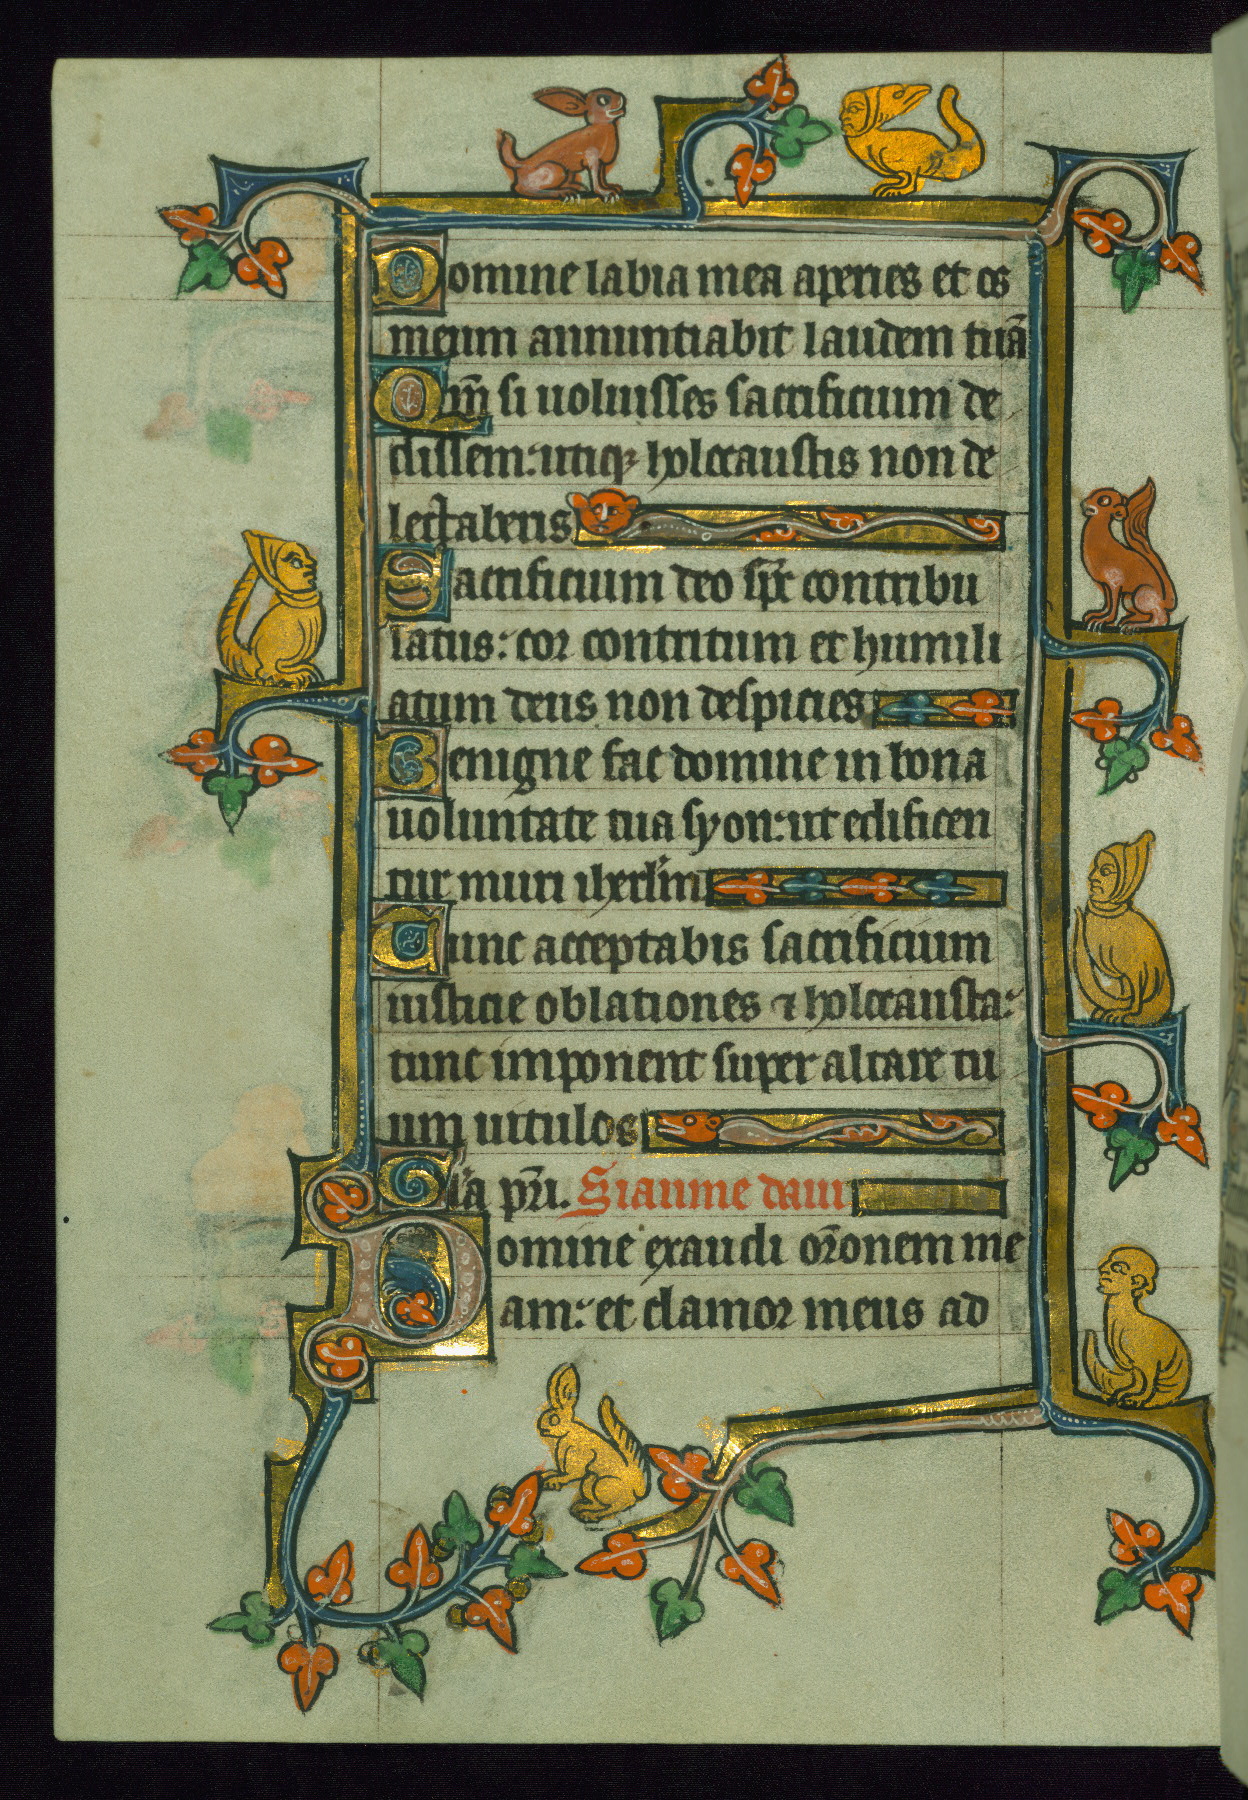 Domine labia mea aperies et os
meum annuntiabit laudem tuā
Qm̄ si uoluisses sacrificium de
dissem: utiqꝫ holocaustis non de
lectaberis
Sacrificium deo sp̄c contribu
latus: cor contritum et humili
atum deus non despicies
Benigne fac domine in bona
uoluntate tua syon: ut edificen
tur muri iherl̓m
Tunc acceptabis sacrificium
iusticie oblationes ⁊ holocausta:
tunc imponent super altare tu
um uitulos
Gl̓ia pr̄i. Siaume daui
Domine exaudi or̄onem me
am: et clamor meus ad